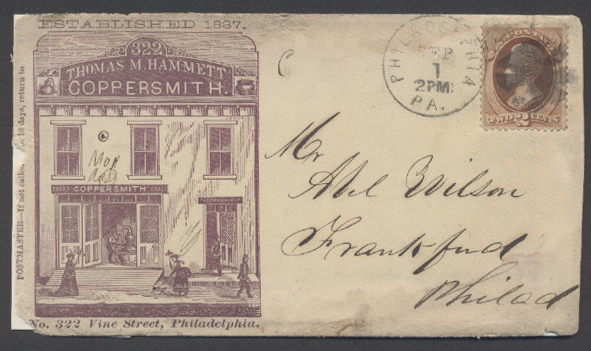 ESTABLISHED 1837.
322
THOMAS M. HAMMETT
COPPERSMITH.
COPPERSMITH
No. 322 Vine Street, Philadelphia.
POSTMASTER—If not called 10 days, return to
PHILADELPHIA
SEP
1
2PM
PA.
TWO 2 CENTS
Mr
Abel Wilson
Frankford
Philad